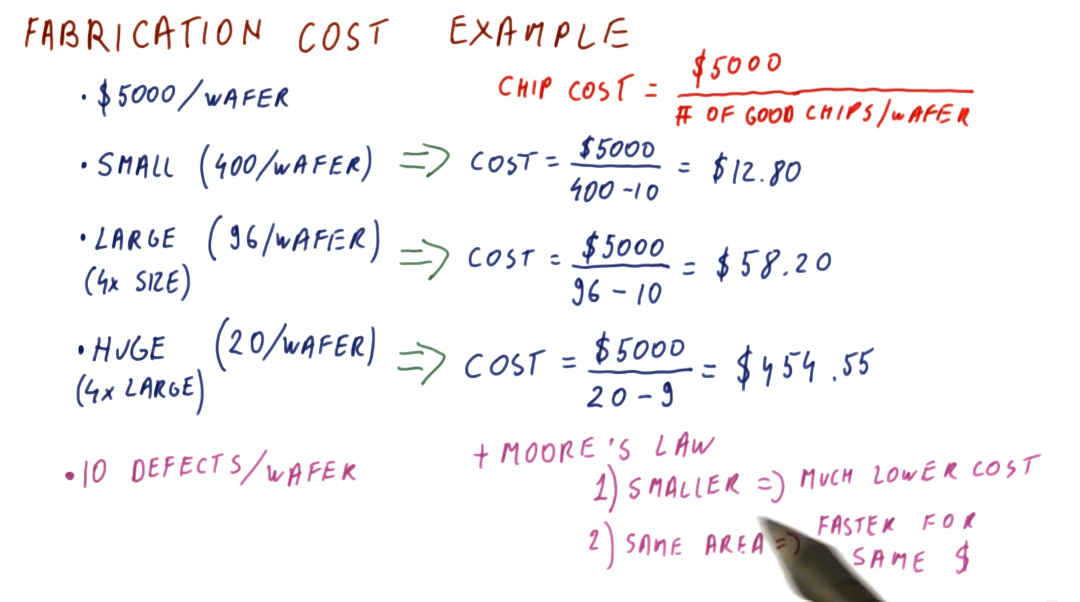 FABRICATION COST EXAMPLE
· $5000/WAFER
CHIP COST = $5000 / # OF GOOD CHIPS/WAFER
· SMALL (400/WAFER) => COST = $5000 / 400-10 = $12.80
· LARGE (96/WAFER) => COST = $5000 / 96-10 = $58.20
(4x SIZE)
· HUGE (20/WAFER) => COST = $5000 / 20-9 = $454.55
(4x LARGE)
· 10 DEFECTS/WAFER
+ MOORE'S LAW
1) SMALLER => MUCH LOWER COST
2) SAME AREA => FASTER FOR
SAME $